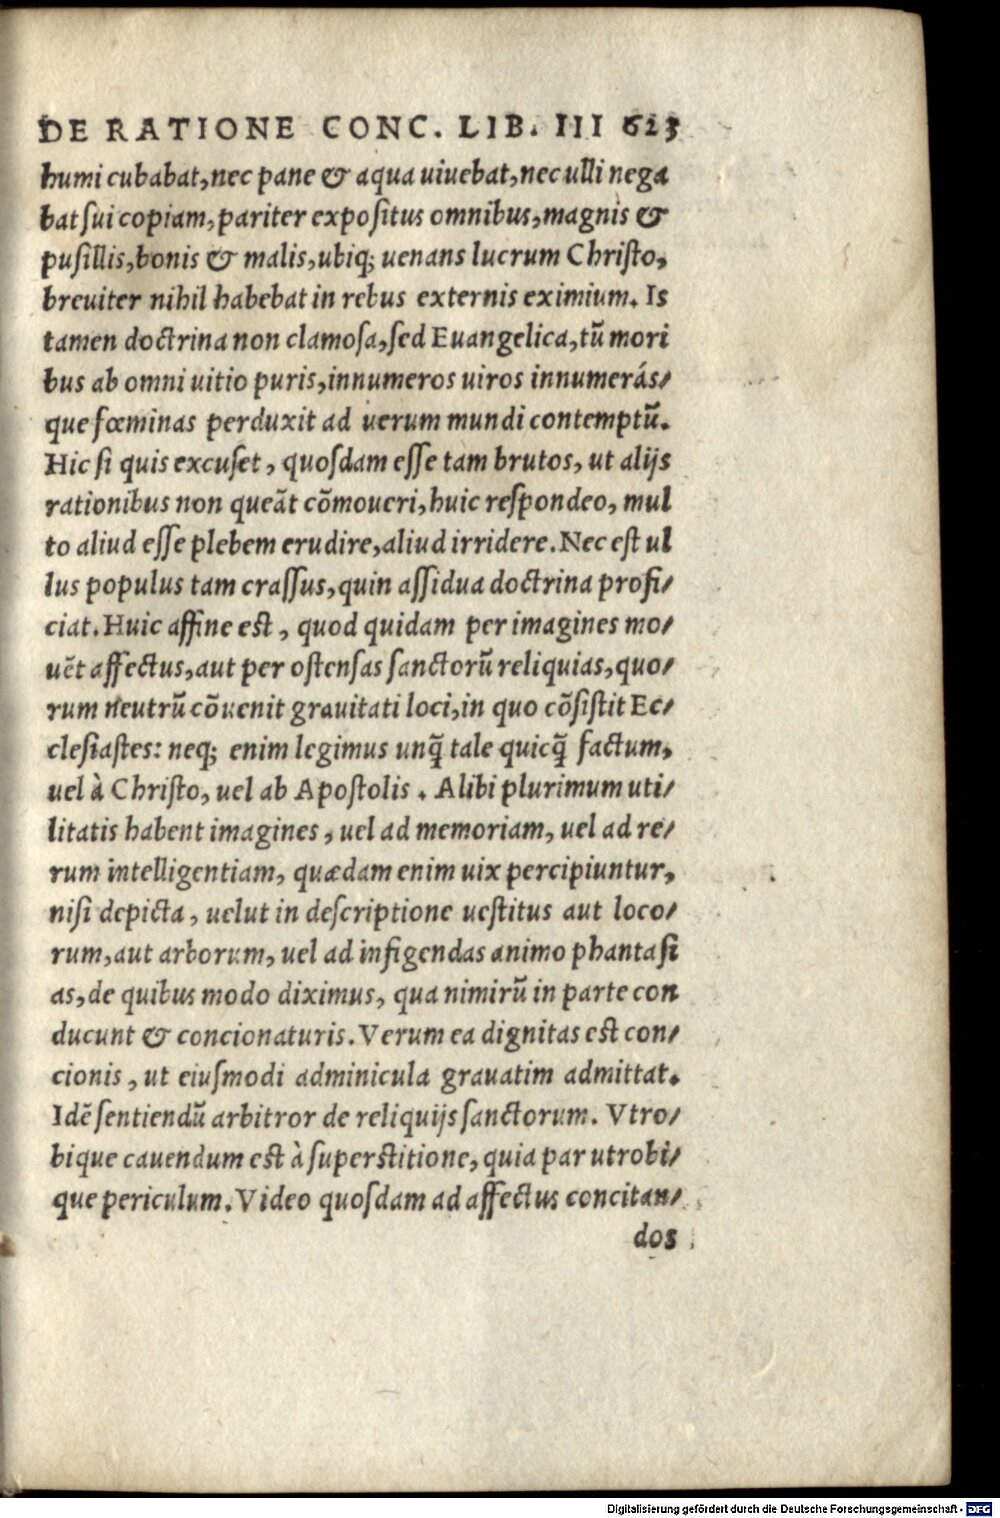 DE RATIONE CONC. LIB. III 623
humi cubabat, nec pane & aqua uiuebat, nec ulli nega
bat sui copiam, pariter expositus omnibus, magnis &
pusillis, bonis & malis, ubiq; uenans lucrum Christo,
breuiter nihil habebat in rebus externis eximium. Is
tamen doctrina non clamosa, sed Euangelica, tũ mori
bus ab omni uitio puris, innumeros uiros innumerás/
que fœminas perduxit ad uerum mundi contemptũ.
Hic si quis excuset, quosdam esse tam brutos, ut alijs
rationibus non queãt cõmoueri, huic respondeo, mul
to aliud esse plebem erudire, aliud irridere. Nec est ul
lus populus tam crassus, quin assidua doctrina profi/
ciat. Huic affine est, quod quidam per imagines mo/
uẽt affectus, aut per ostensas sanctorũ reliquias, quo/
rum neutrũ cõuenit grauitati loci, in quo cõsistit Ec/
clesiastes: neq; enim legimus unq̃ tale quicq̃ factum,
uel à Christo, uel ab Apostolis. Alibi plurimum uti/
litatis habent imagines, uel ad memoriam, uel ad re/
rum intelligentiam, quædam enim uix percipiuntur,
nisi depicta, uelut in descriptione uestitus aut loco/
rum, aut arborum, uel ad infigendas animo phantasi
as, de quibus modo diximus, qua nimirũ in parte con
ducunt & concionaturis. Verum ea dignitas est con/
cionis, ut eiusmodi adminicula grauatim admittat.
Idẽ sentiendũ arbitror de reliquijs sanctorum. Vtro/
bique cauendum est à superstitione, quia par utrobi/
que periculum. Video quosdam ad affectus concitan/
dos
Digitalisierung gefördert durch die Deutsche Forschungsgemeinschaft - DFG